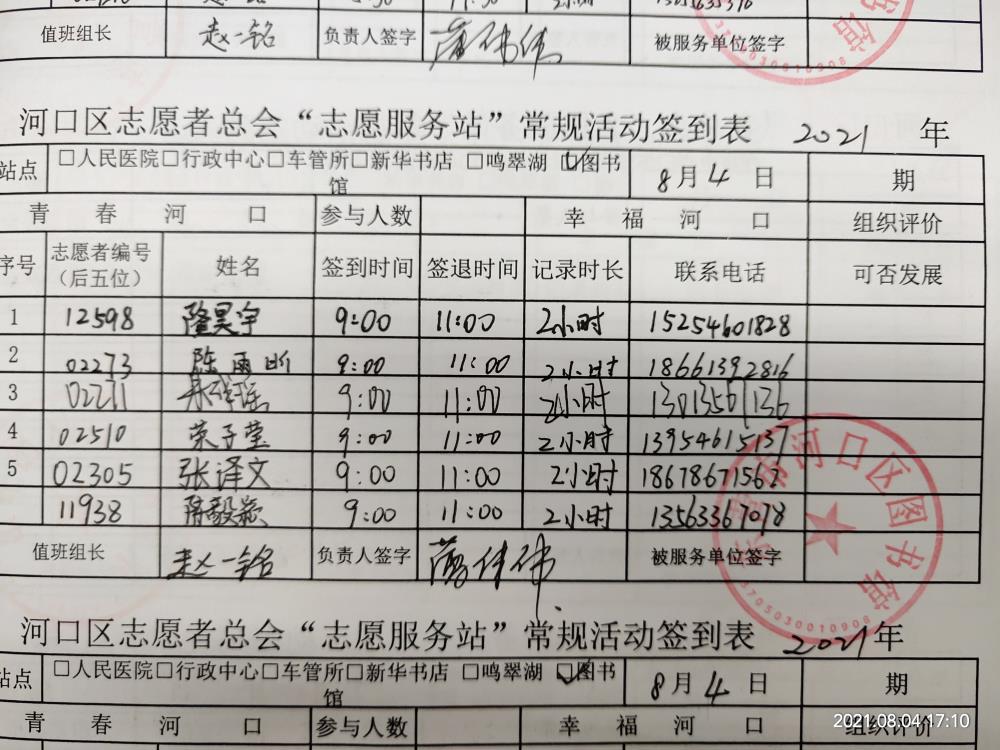 值班组长 赵一铭 负责人签字 被服务单位签字
河口区志愿者总会“志愿服务站”常规活动签到表 2021 年
站点 □人民医院□行政中心□车管所□新华书店 □鸣翠湖 ☑图书馆 8月4日 期
青春河口 参与人数 幸福河口 组织评价
序号 志愿者编号（后五位） 姓名 签到时间 签退时间 记录时长 联系电话 可否发展
1 12598 隆昊宇 9:00 11:00 2小时 15254601828
2 02273 陈雨昕 9:00 11:00 2小时 18661392816
3 02271 9:00 11:00 2小时 13013561136
4 02510 荣子莹 9:00 11:00 2小时 13954615137
5 02305 张译文 9:00 11:00 2小时
11938 陈毅颖 9:00 11:00 2小时 13563367078
值班组长 赵一铭 负责人签字 被服务单位签字
河口区图书馆
3705030010908
河口区志愿者总会“志愿服务站”常规活动签到表 2021年
站点 □人民医院□行政中心□车管所□新华书店 □鸣翠湖 ☑图书馆 8月4日 期
青春河口 参与人数 幸福河口 组织评价
2021.08.04 17:10